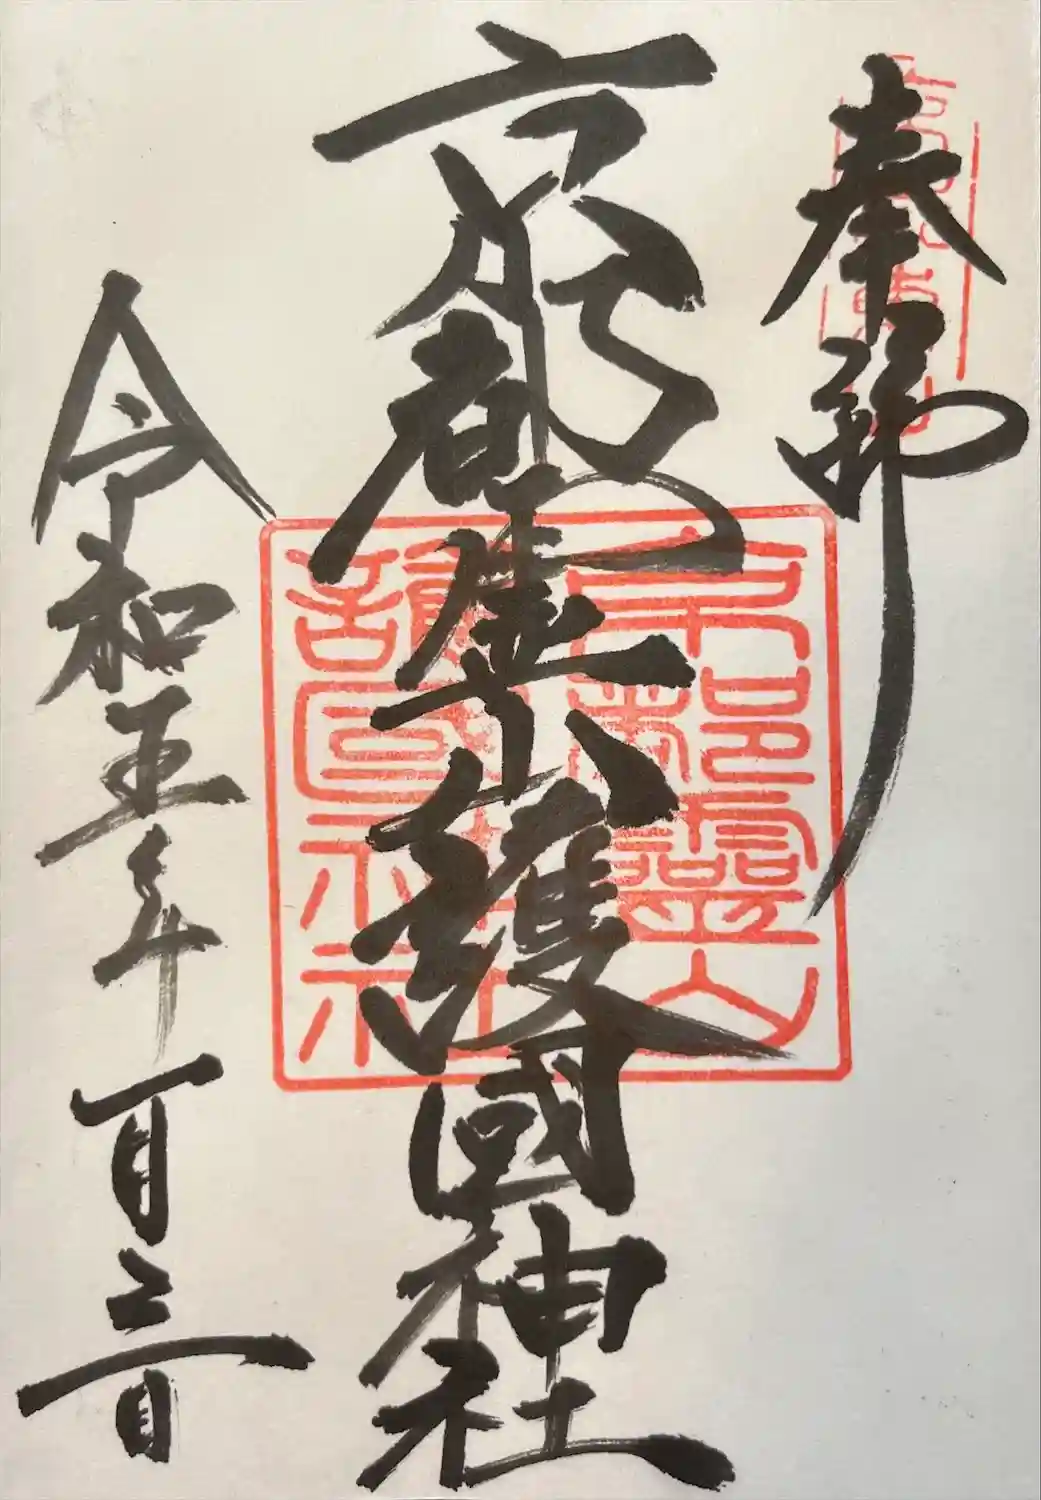 奉拝
京都霊山護國神社
令和五年一月三日
京都靈山
護國神社